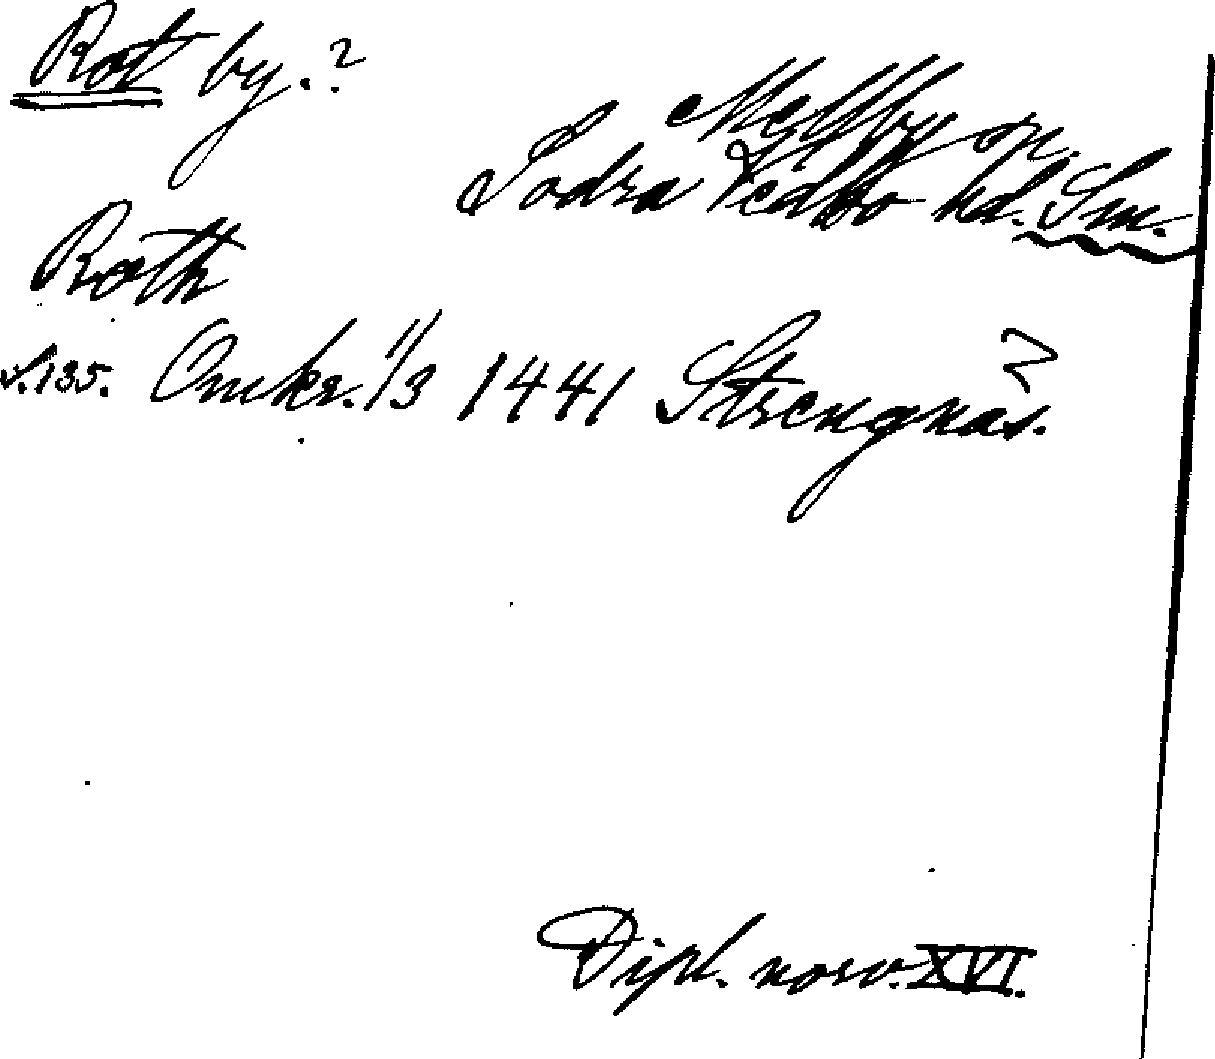 Rot by.?
Mellby sn.
Södra Vedbo hd. Sm.
Roth
s.135. Omkr. 1/3 1441 Strengnäs. ?
Dipl. norv. XVI.